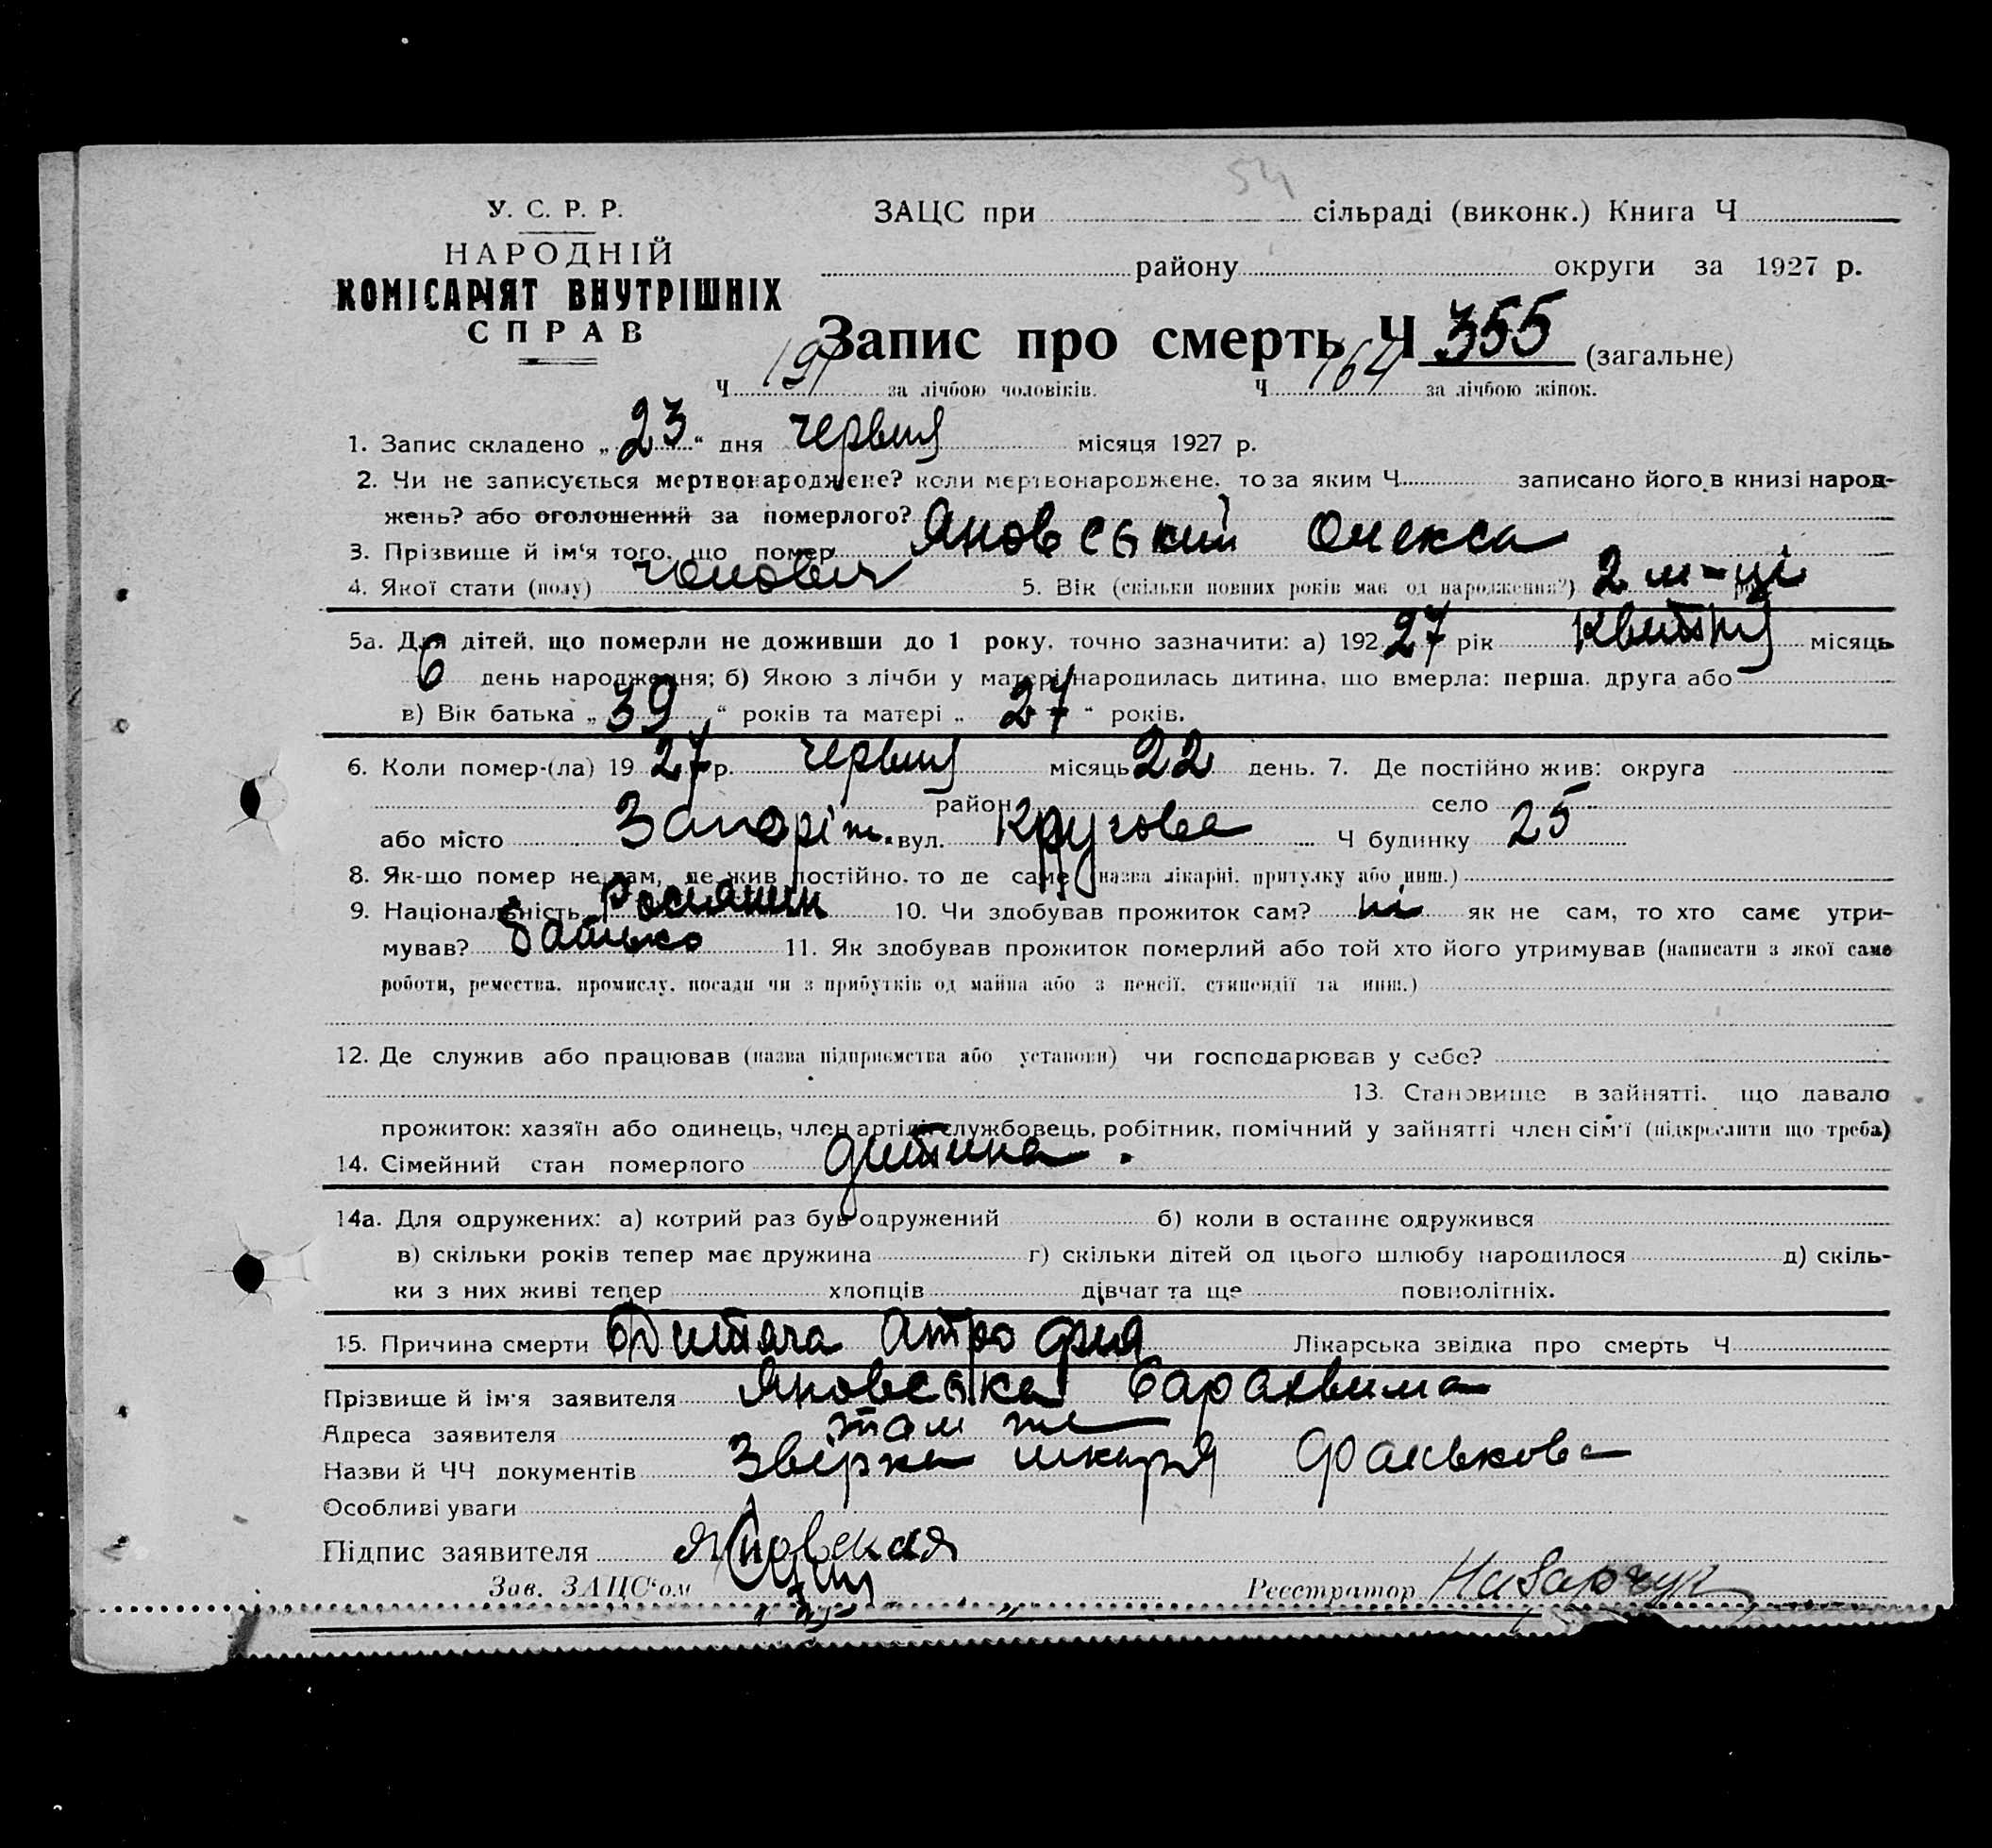 54
У. С. Р. Р.
НАРОДНІЙ
КОМІСАРІЯТ ВНУТРІШНІХ
СПРАВ
ЗАЦС при сільраді (виконк.) Книга Ч
району округи за 1927 р.
Запис про смерть Ч 355 (загальне)
Ч 191 за лічбою чоловіків. Ч 164 за лічбою жінок.
1. Запис складено „ 23 “ дня червня місяця 1927 р.
2. Чи не записується мертвонароджене? коли мертвонароджене, то за яким Ч записано його в книзі народ-
жень? або оголошений за померлого?
3. Прізвище й ім‘я того, що помер Яновський Олекса
4. Якої стати (полу) чоловіч 5. Вік (скільки повних років має од народження?) 2 м-ці
5а. Для дітей, що померли не доживши до 1 року, точно зазначити: а) 192 27 рік Квітня місяць
6 день народження; б) Якою з лічби у матері народилась дитина, що вмерла: перша, друга або
в) Вік батька „ 39 “ років та матері „ 27 “ років.
6. Коли помер-(ла) 19 27 р. червня місяць 22 день. 7. Де постійно жив: округа
район село
або місто Запоріж. вул. Кругова Ч будинку 25
8. Як-що помер не там, де жив постійно, то де саме (назва лікарні, притулку або инш.)
9. Національність Росіянин 10. Чи здобував прожиток сам? ні як не сам, то хто саме утри-
мував? батько 11. Як здобував прожиток померлий або той хто його утримував (написати з якої саме
роботи, ремества, промислу, посади чи з прибутків од майна або з пенсії, стипендії та инш.)
12. Де служив або працював (назва підприємства або установи) чи господарював у себе?
13. Становище в зайнятті, що давало
прожиток: хазяїн або одинець, член артілі, службовець, робітник, помічний у зайнятті член сім‘ї (підкреслити що треба)
14. Сімейний стан померлого дитина.
14а. Для одружених: а) котрий раз був одружений б) коли в останнє одружився
в) скільки років тепер має дружина г) скільки дітей од цього шлюбу народилося д) скіль-
ки з них живі тепер хлопців дівчат та ще повнолітніх.
15. Причина смерти Дитяча атрофия Лікарська звідка про смерть Ч
Прізвище й ім‘я заявителя Яновська
Адреса заявителя там же
Назви й ЧЧ документів Звірка лікаря Фалькова
Особливі уваги
Підпис заявителя Яновская
Зав. ЗАЦС‘ом Реєстратор Назарчук